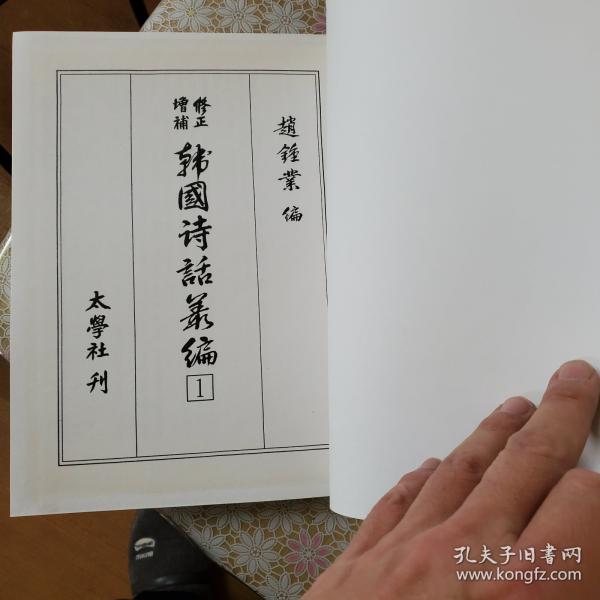 趙鍾業 編
修正
增補
韓國诗話叢編
1
太學社刊
孔夫子旧書网
www.kongfz.com